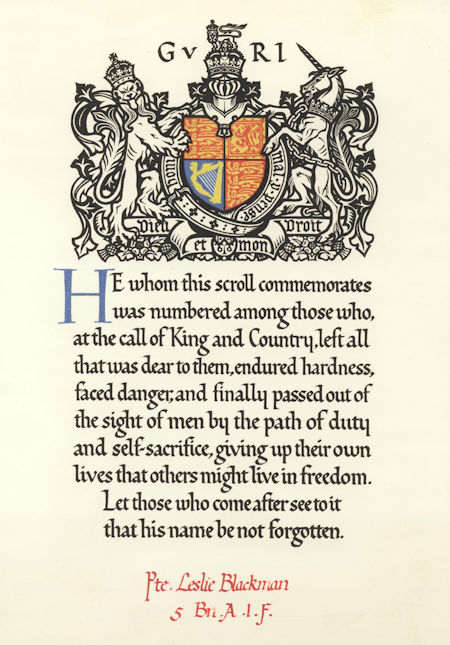 G V R I
Honi soit qui mal y pense
Dieu et mon Droit
HE whom this scroll commemorates
was numbered among those who,
at the call of King and Country, left all
that was dear to them, endured hardness,
faced danger, and finally passed out of
the sight of men by the path of duty
and self-sacrifice, giving up their own
lives that others might live in freedom.
Let those who come after see to it
that his name be not forgotten.
Pte. Leslie Blackman
5 Bn. A. I. F.